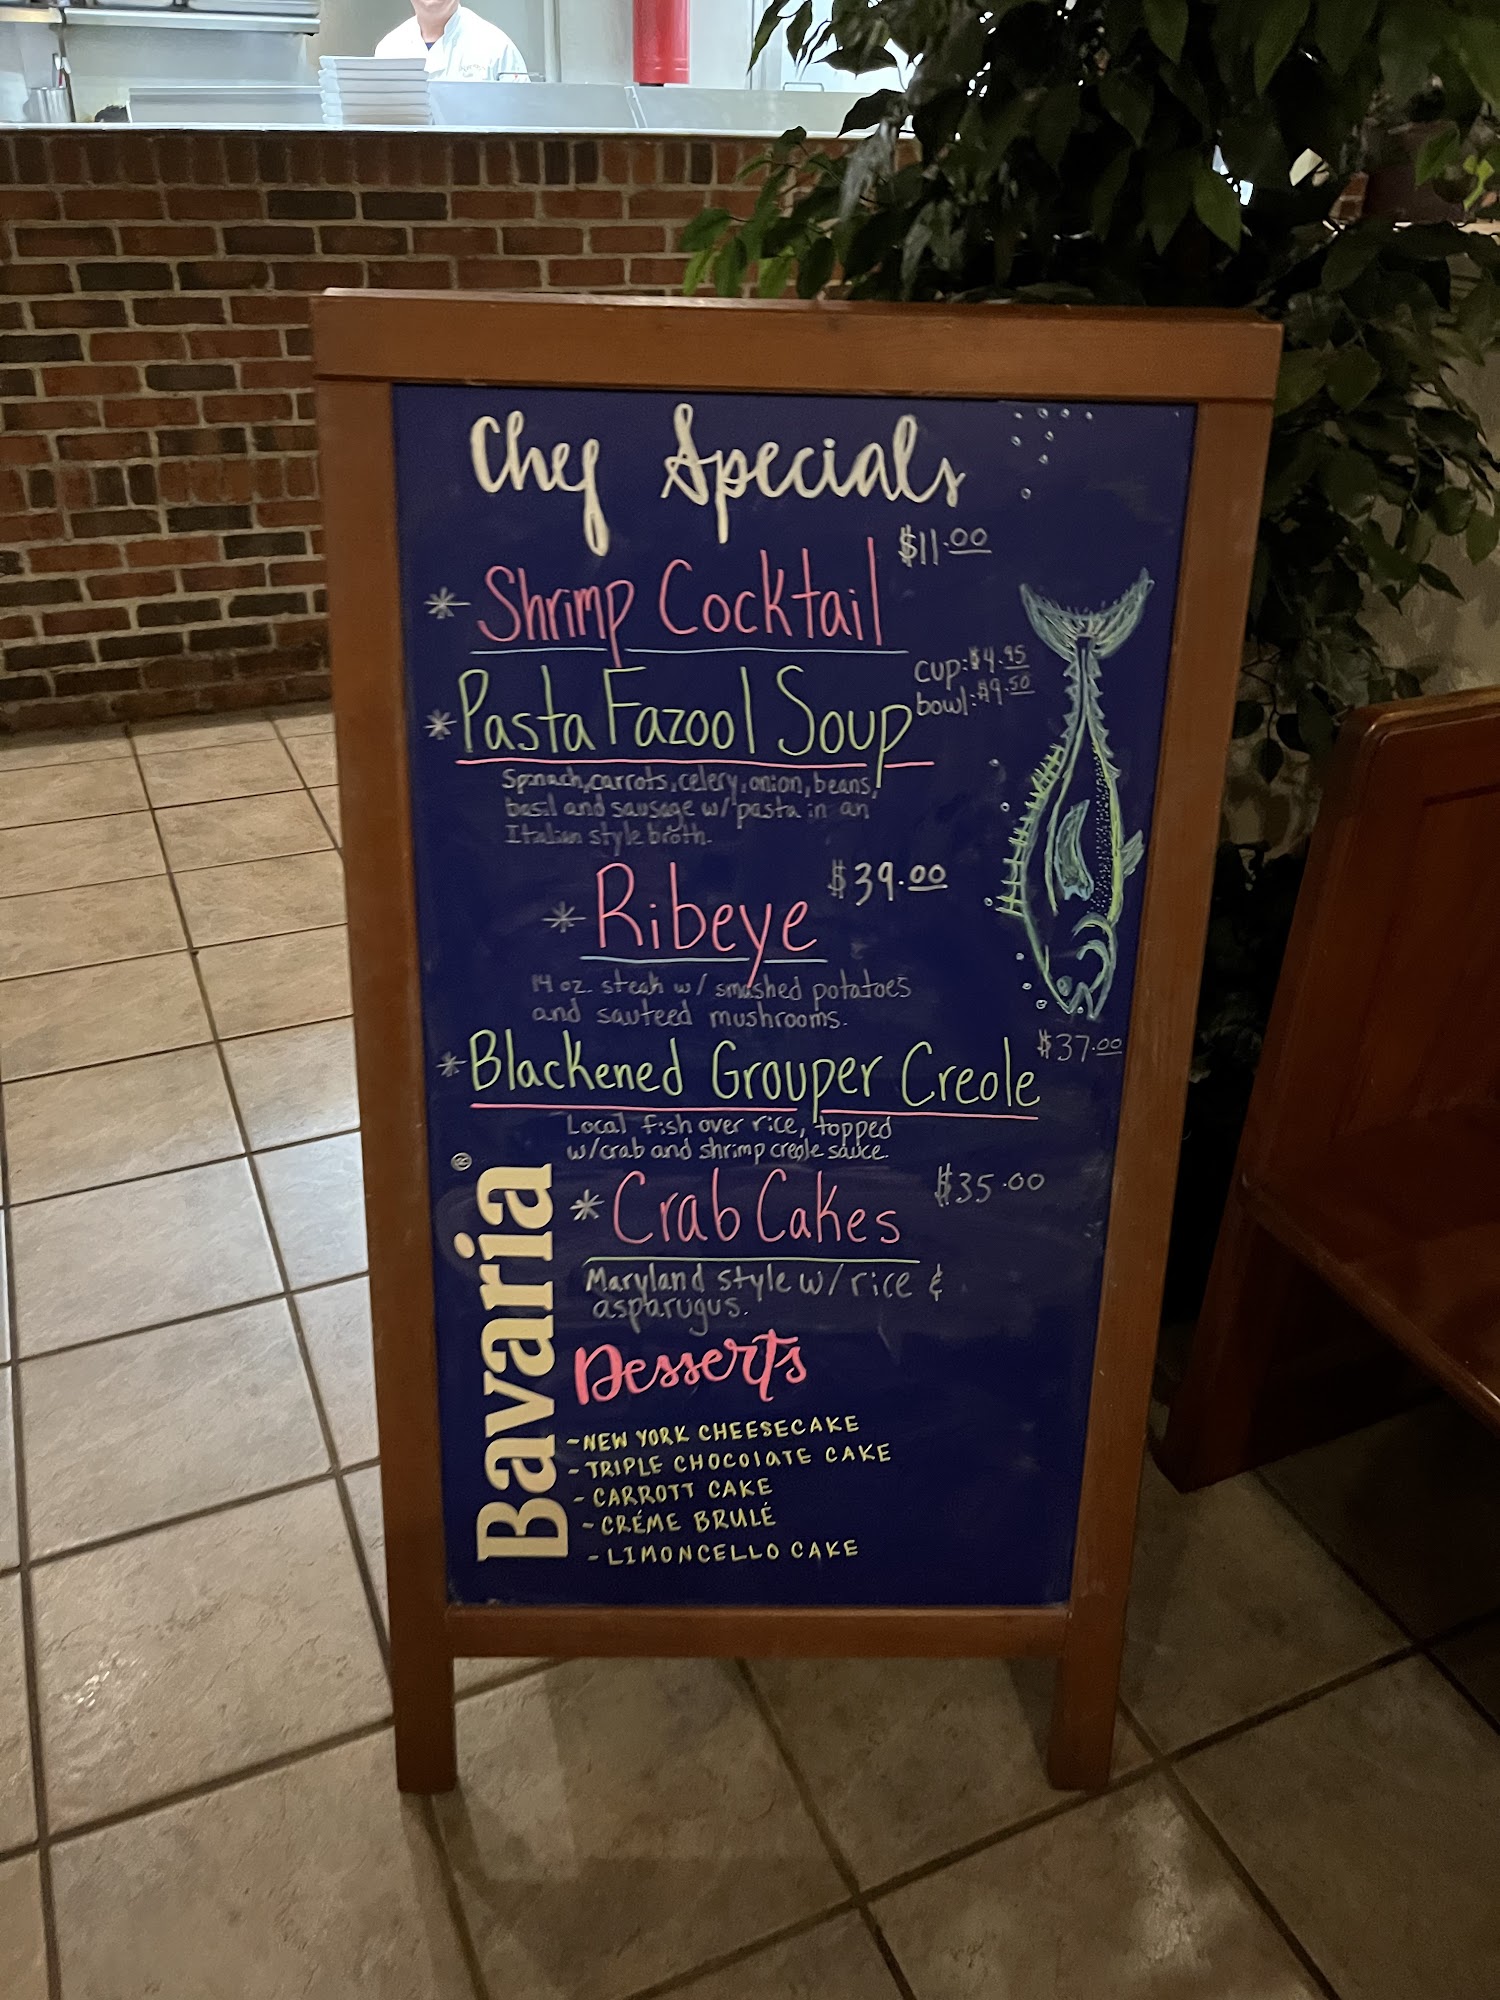 Chef Specials
$11.00
* Shrimp Cocktail
cup: $4.95
bowl: $9.50
* Pasta Fazool Soup
Spinach, carrots, celery, onion, beans,
basil and sausage w/ pasta in an
Italian style broth.
$39.00
* Ribeye
14 oz. steak w/ smashed potatoes
and sauteed mushrooms.
$37.00
* Blackened Grouper Creole
Local fish over rice, topped
w/crab and shrimp creole sauce.
$35.00
* Crab Cakes
Maryland style w/ rice &
asparugus.
Desserts
- NEW YORK CHEESECAKE
- TRIPLE CHOCOlATE CAKE
- CARROTT CAKE
- CRÉME BRULÉ
- LIMONCELLO CAKE
Bavaria